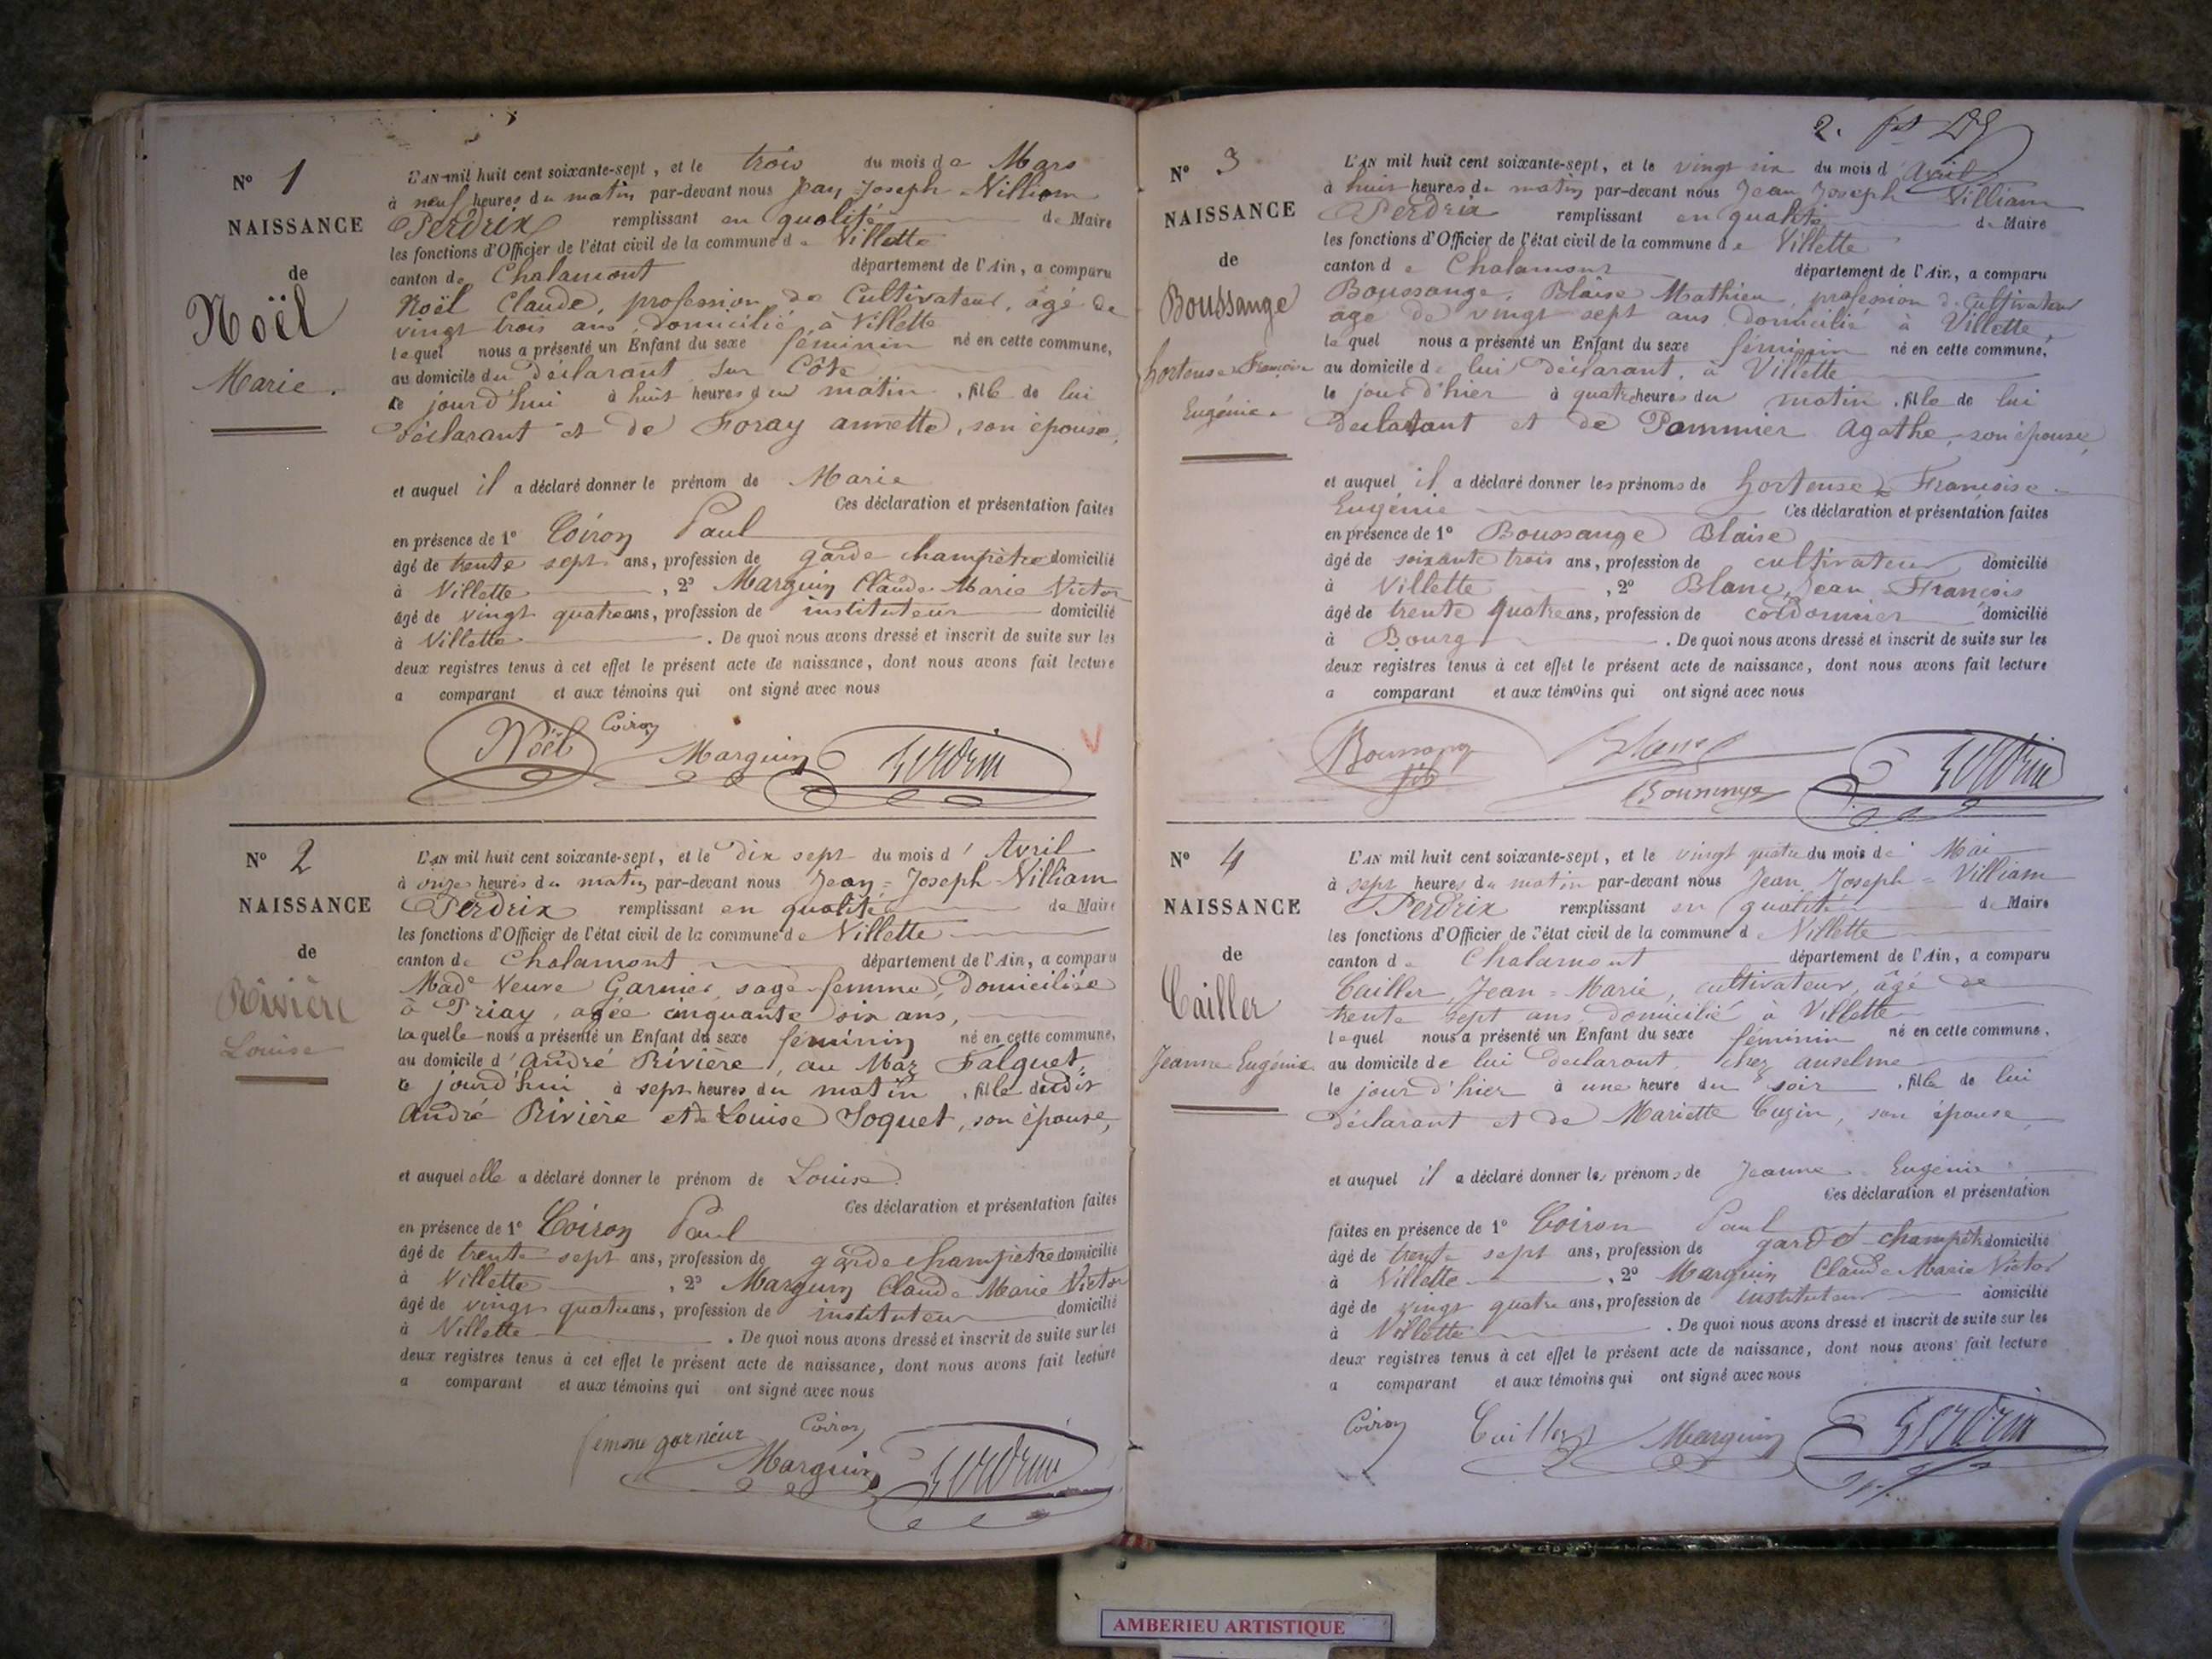 Nº 1
NAISSANCE
de
Noël
Marie.
L'AN mil huit cent soixante-sept, et le trois du mois de Mars
à neuf heures du matin par-devant nous Jean-Joseph-Villiam
Perdrix remplissant en qualité de Maire
les fonctions d'Officier de l'état civil de la commune de Villette
canton de Chalamont département de l'Ain, a comparu
Noël Claude, profession de Cultivateur, âgé de
vingt trois ans, domicilié à Villette
lequel nous a présenté un Enfant du sexe féminin né en cette commune,
au domicile du déclarant, sur Côte
le jourd'hui à huit heures du matin, fille de lui
déclarant et de Foray annette, son épouse,
et auquel il a déclaré donner le prénom de Marie
Ces déclaration et présentation faites
en présence de 1º Coiron Paul
âgé de trente sept ans, profession de garde champêtre domicilié
à Villette, 2º Marguin Claude Marie Victor
âgé de vingt quatre ans, profession de instituteur domicilié
à Villette. De quoi nous avons dressé et inscrit de suite sur les
deux registres tenus à cet effet le présent acte de naissance, dont nous avons fait lecture
a comparant et aux témoins qui ont signé avec nous
Noël Coiron Marguin Perdrix
Nº 2
NAISSANCE
de
Rivière
Louise
L'AN mil huit cent soixante-sept, et le dix sept du mois d'Avril
à onze heures du matin par-devant nous Jean-Joseph-Villiam
Perdrix remplissant en qualité de Maire
les fonctions d'Officier de l'état civil de la commune de Villette
canton de Chalamont département de l'Ain, a comparu
Made Veuve Garnier, sage-femme, domiciliée
à Priay, agée cinquante six ans,
laquelle nous a présenté un Enfant du sexe féminin né en cette commune,
au domicile d'André Rivière, au Maz Falquet,
le jourd'hui à sept heures du matin, fille dudit
André Rivière et de Louise Joquet, son épouse,
et auquel elle a déclaré donner le prénom de Louise.
Ces déclaration et présentation faites
en présence de 1º Coiron Paul
âgé de trente sept ans, profession de garde champêtre domicilié
à Villette, 2º Marguin Claude Marie Victor
âgé de vingt quatre ans, profession de instituteur domicilié
à Villette. De quoi nous avons dressé et inscrit de suite sur les
deux registres tenus à cet effet le présent acte de naissance, dont nous avons fait lecture
a comparant et aux témoins qui ont signé avec nous
femme garnier Coiron
Marguin Perdrix
2.
Nº 3
NAISSANCE
de
Boussange
hortense Françoise
Eugénie.
L'AN mil huit cent soixante-sept, et le vingt six du mois d'Avril
à huit heures du matin par-devant nous Jean Joseph Villiam
Perdrix remplissant en qualité de Maire
les fonctions d'Officier de l'état civil de la commune de Villette
canton de Chalamont département de l'Ain, a comparu
Boussange, Blaise Mathieu, profession de Cultivateur
âge de vingt sept ans domicilié à Villette,
lequel nous a présenté un Enfant du sexe féminin né en cette commune,
au domicile de lui déclarant, à Villette
le jour d'hier à quatre heures du matin, fille de lui
declarant et de Pommier Agathe, son épouse,
et auquel il a déclaré donner les prénoms de hortense Françoise
Eugénie Ces déclaration et présentation faites
en présence de 1º Boussange Blaise
âgé de soixante trois ans, profession de cultivateur domicilié
à Villette, 2º Blanc, Jean François
âgé de trente quatre ans, profession de cordonnier domicilié
à Bourg. De quoi nous avons dressé et inscrit de suite sur les
deux registres tenus à cet effet le présent acte de naissance, dont nous avons fait lecture
a comparant et aux témoins qui ont signé avec nous
Boussange fils Blanc Perdrix
Boussange
Nº 4
NAISSANCE
de
Cailler
Jeanne Eugénie
L'AN mil huit cent soixante-sept, et le vingt quatre du mois de Mai
à sept heures du matin par-devant nous Jean Joseph-Villiam
Perdrix remplissant en qualité de Maire
les fonctions d'Officier de l'état civil de la commune de Villette
canton de Chalamont département de l'Ain, a comparu
Cailler, Jean-Marie, cultivateur, âgé de
trente sept ans, domicilié à Villette
lequel nous a présenté un Enfant du sexe féminin né en cette commune,
au domicile de lui déclarant, chez anselme
le jour d'hier à une heure du soir, fille de lui
déclarant et de Mariette Cuzin, son épouse,
et auquel il a déclaré donner les prénoms de Jeanne Eugénie
Ces déclaration et présentation
faites en présence de 1º Coiron Paul
âgé de trente sept ans, profession de garde-champêtre domicilié
à Villette, 2º Marguin Claude Marie Victor
âgé de vingt quatre ans, profession de instituteur domicilié
à Villette. De quoi nous avons dressé et inscrit de suite sur les
deux registres tenus à cet effet le présent acte de naissance, dont nous avons fait lecture
a comparant et aux témoins qui ont signé avec nous
Coiron Cailler Marguin Perdrix
AMBERIEU ARTISTIQUE